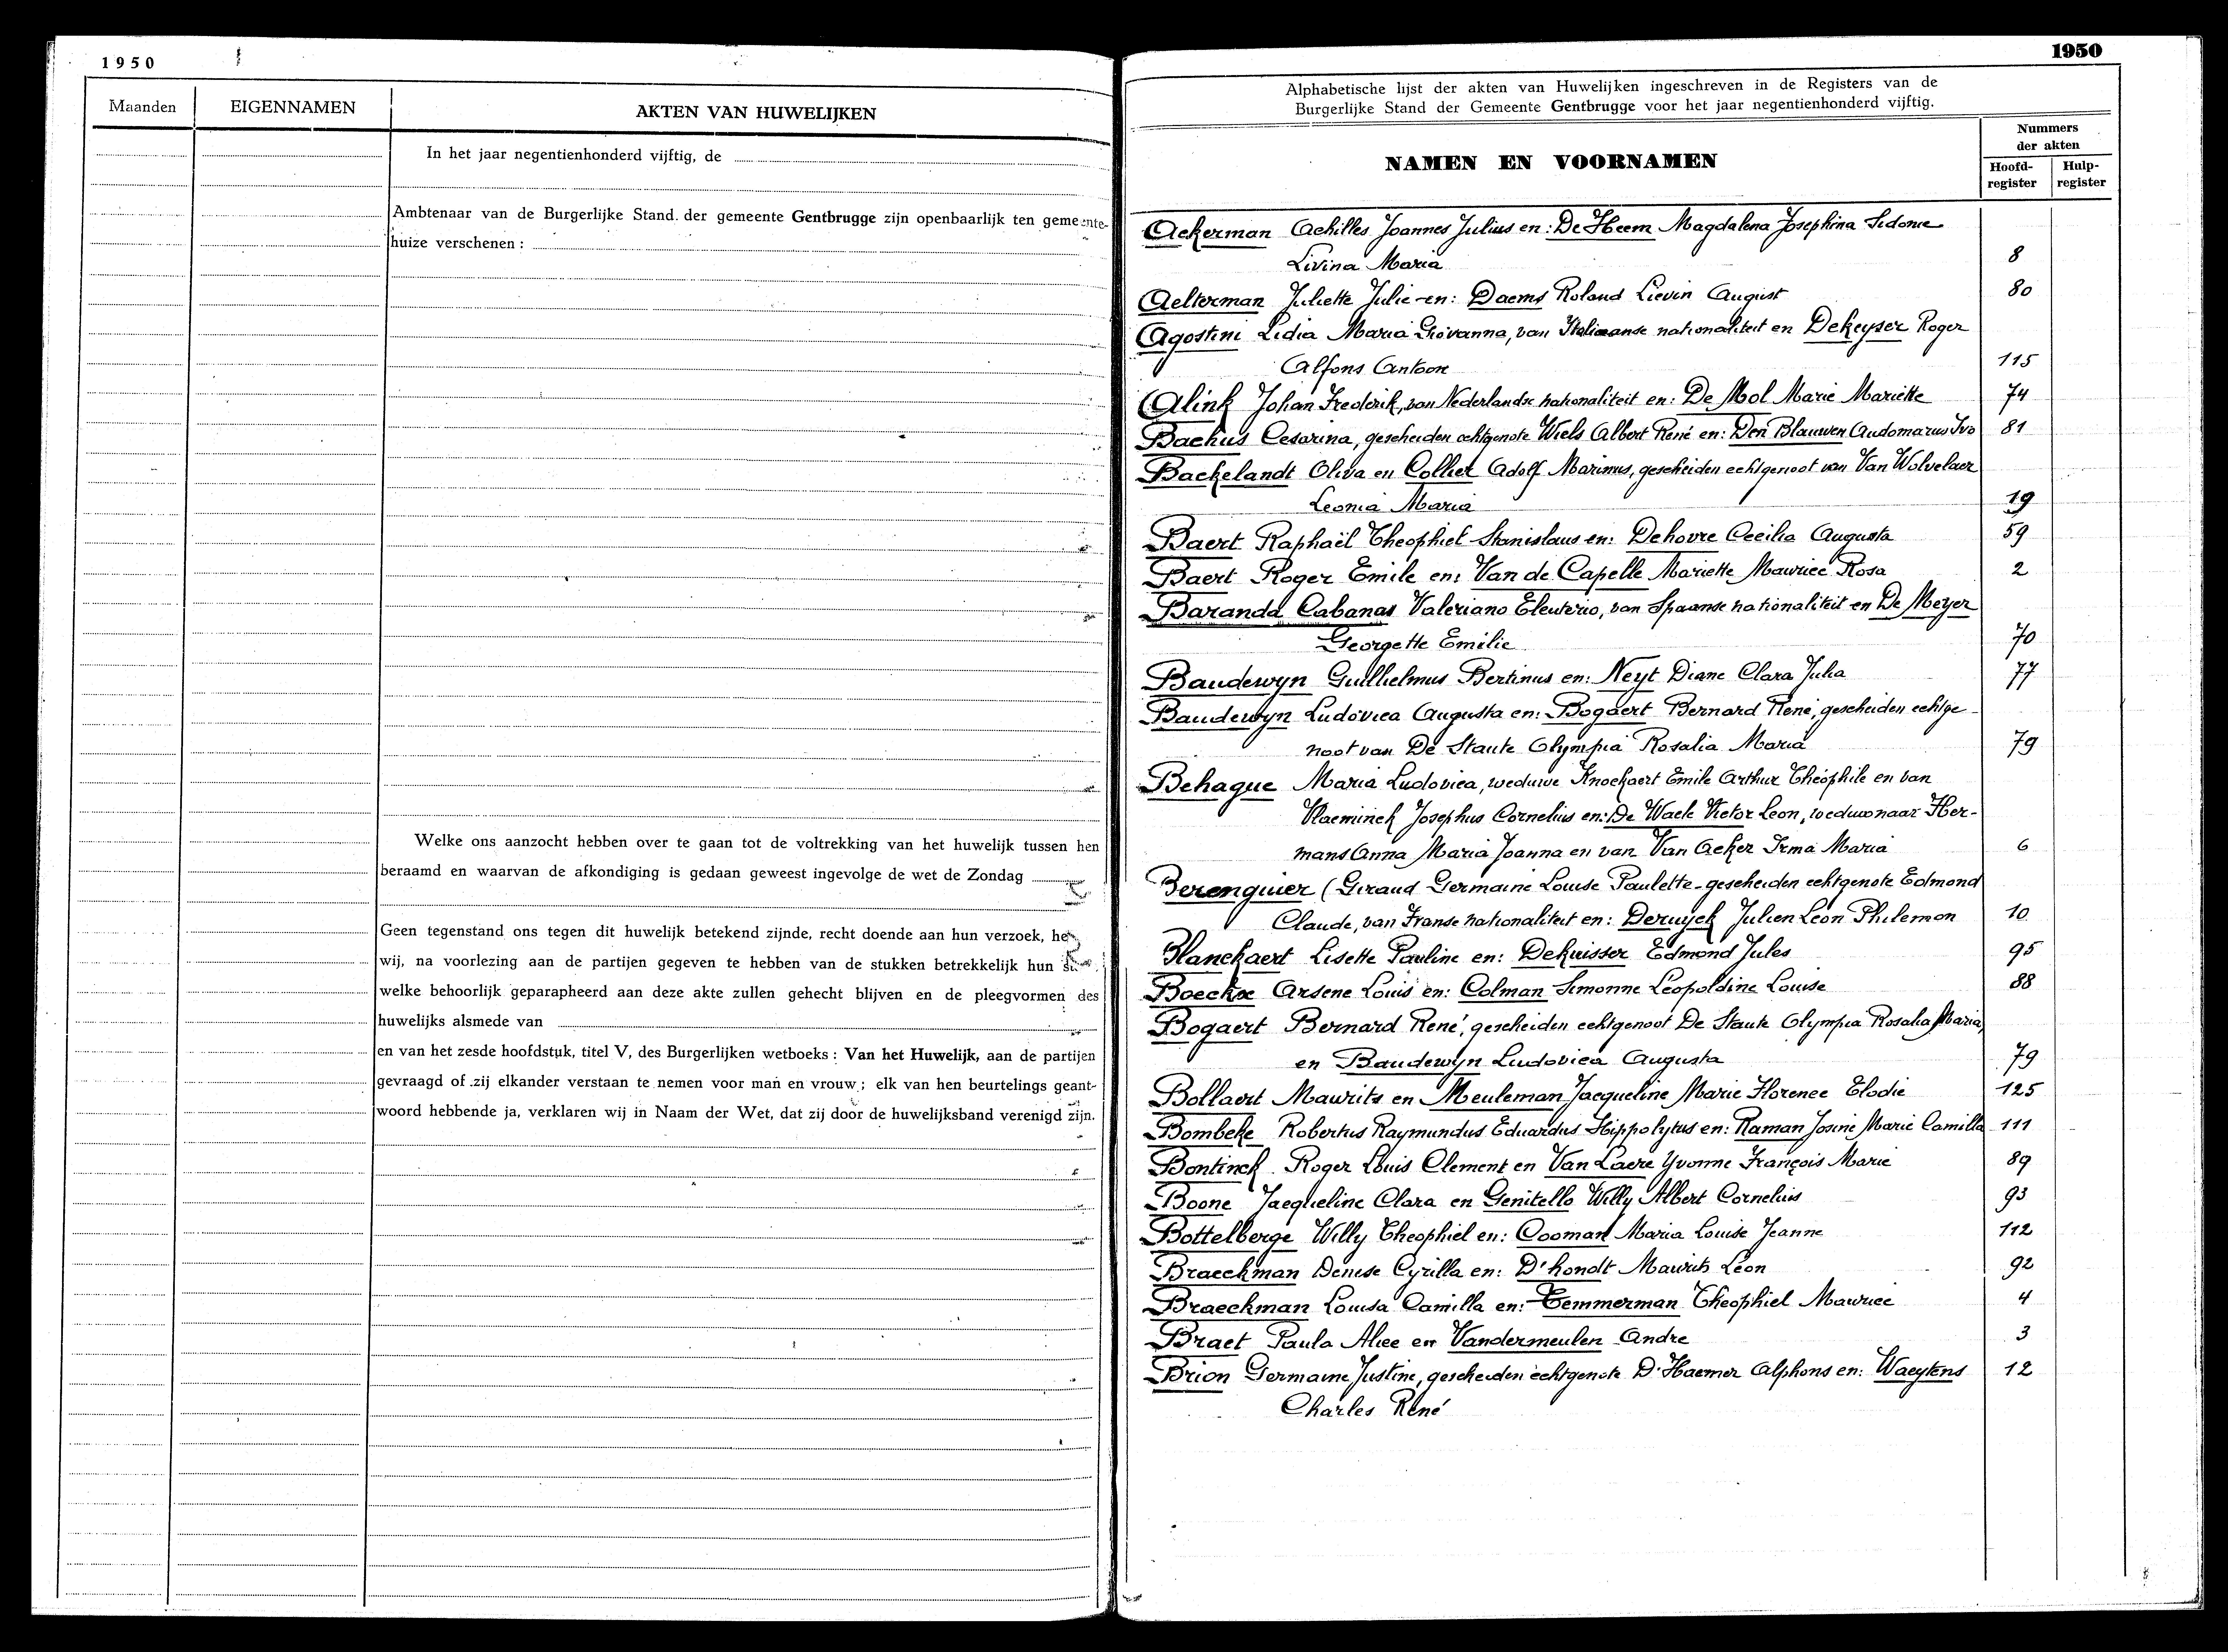 1950
Maanden
EIGENNAMEN
AKTEN VAN HUWELIJKEN
In het jaar negentienhonderd vijftig, de
Ambtenaar van de Burgerlijke Stand. der gemeente Gentbrugge zijn openbaarlijk ten gemeente-
huize verschenen :
Welke ons aanzocht hebben over te gaan tot de voltrekking van het huwelijk tussen hen
beraamd en waarvan de afkondiging is gedaan geweest ingevolge de wet de Zondag
Geen tegenstand ons tegen dit huwelijk betekend zijnde, recht doende aan hun verzoek,
wij, na voorlezing aan de partijen gegeven te hebben van de stukken betrekkelijk hun
welke behoorlijk geparapheerd aan deze akte zullen gehecht blijven en de pleegvormen des
huwelijks alsmede van
en van het zesde hoofdstuk, titel V, des Burgerlijken wetboeks : Van het Huwelijk, aan de partijen
gevraagd of zij elkander verstaan te nemen voor man en vrouw ; elk van hen beurtelings geant-
woord hebbende ja, verklaren wij in Naam der Wet, dat zij door de huwelijksband verenigd zijn.
1950
Alphabetische lijst der akten van Huwelijken ingeschreven in de Registers van de
Burgerlijke Stand der Gemeente Gentbrugge voor het jaar negentienhonderd vijftig.
NAMEN EN VOORNAMEN
Nummers
der akten
Hoofd-
register
Hulp-
register
Ackerman Achilles Joannes Julius en: De Heem Magdalena Josephina Sidonie
Livina Maria 8
Aelterman Juliette Julie en: Daems Roland Lievin August 80
Agostini Lidia Maria Giovanna, van Italiaanse nationaliteit en Dekeyser Roger
Alfons Antoon 115
Alink Johan Frederik, van Nederlandse nationaliteit en: De Mol Marie Mariette 74
Backus Cesarina, gescheiden echtgenote Wiels Albert René en: Den Blauwen Audomarus Ivo 81
Backelandt Oliva en Collier Adolf Marinus, gescheiden echtgenoot van Van Wolvelaer
Leonia Maria 19
Baert Raphaël Theophiel Stanislaus en: Dehovre Cecilia Augusta 59
Baert Roger Emile en: Van de Capelle Mariette Maurice Rosa 2
Baranda Cabanas Valeriano Eleuterio, van Spaanse nationaliteit en De Meyer
Georgette Emilie 70
Baudewyn Guillielmus Bertinus en: Neyt Diane Clara Julia 77
Baudewyn Ludovica Augusta en: Bogaert Bernard René, gescheiden echtge-
noot van De Staute Olympia Rosalia Maria 79
Behague Maria Ludovica, weduwe Knockaert Emile Arthur Théophile en van
Vlaeminck Josephus Cornelius en: De Waele Victor Leon, weduwnaar Her-
mans Anna Maria Joanna en van Van Acker Irma Maria 6
Berenguier (Giraud Germaine Louise Paulette - gescheiden echtgenote Edmond
Claude, van Franse nationaliteit en: Deruyck Julien Leon Philemon 10
Blanckaert Lisette Pauline en: Dekuisser Edmond Jules 95
Boeckx Arsene Louis en: Colman Simonne Leopoldine Louise 88
Bogaert Bernard René, gescheiden echtgenoot De Staute Olympia Rosalia Maria,
en Baudewyn Ludovica Augusta 79
Bollaert Maurits en Meuleman Jacqueline Marie Florence Elodie 125
Bombeke Robertus Raymundus Eduardus Hippolytus en: Raman Josine Marie Camilla 111
Bontinck Roger Louis Clement en Van Laere Yvonne François Marie 89
Boone Jacqueline Clara en Genitello Willy Albert Cornelius 93
Bottelberge Willy Theophiel en: Cooman Maria Louise Jeanne 112
Braeckman Denise Cyrilla en: D'hondt Maurits Leon 92
Braeckman Louisa Camilla en: Temmerman Theophiel Maurice 4
Braet Paula Alice en Vandermeulen Andre 3
Brion Germaine Justine, gescheiden echtgenote D'Haemer Alphons en: Waeytens 12
Charles René